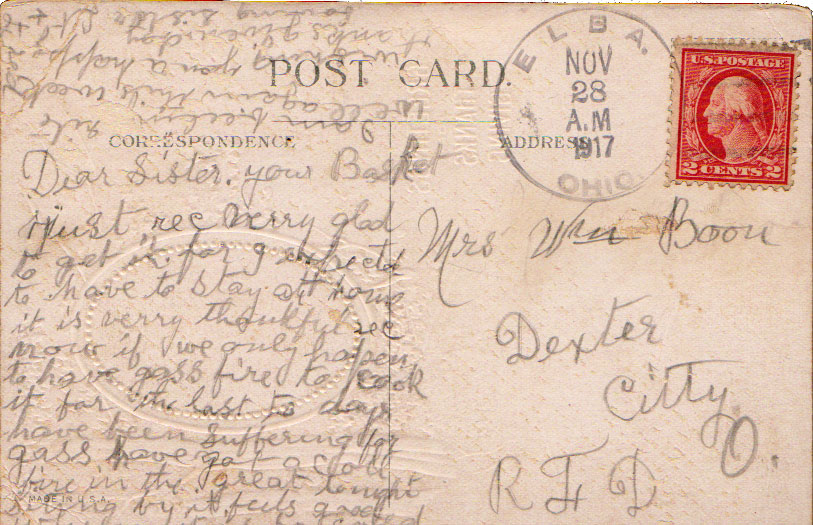 POST CARD.
CORRESPONDENCE
ADDRESS
ELBA.
NOV
28
A.M
1917
OHIO.
U.S. POSTAGE
2 CENTS 2
Dear Sister, your Basket
just rec verry glad
to get it for I expectd
to have to stay at home
it is verry thankful rec
now if we only hapen
to have gass fire to cook
it for in last 2 days
have been suffering for
gass have got a coal
fire in the great tonight
siting by it feels good
Mrs Wm Boon
Dexter
Citty
O.
R F D
MADE IN U.S.A.
well again this week
you a happy
thanks giveing day
sister